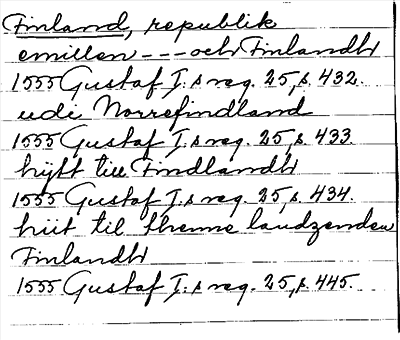 Finland, republik
emillen --- och Finlandh
1555 Gustaf I:s reg. 25, s. 432.
udi Norrefindland
1555 Gustaf I:s reg. 25, s. 433.
hijtt till Findlandh
1555 Gustaf I:s reg. 25, s. 434.
hiit til thenne landzenden
Finlandh
1555 Gustaf I:s reg. 25, s. 445.